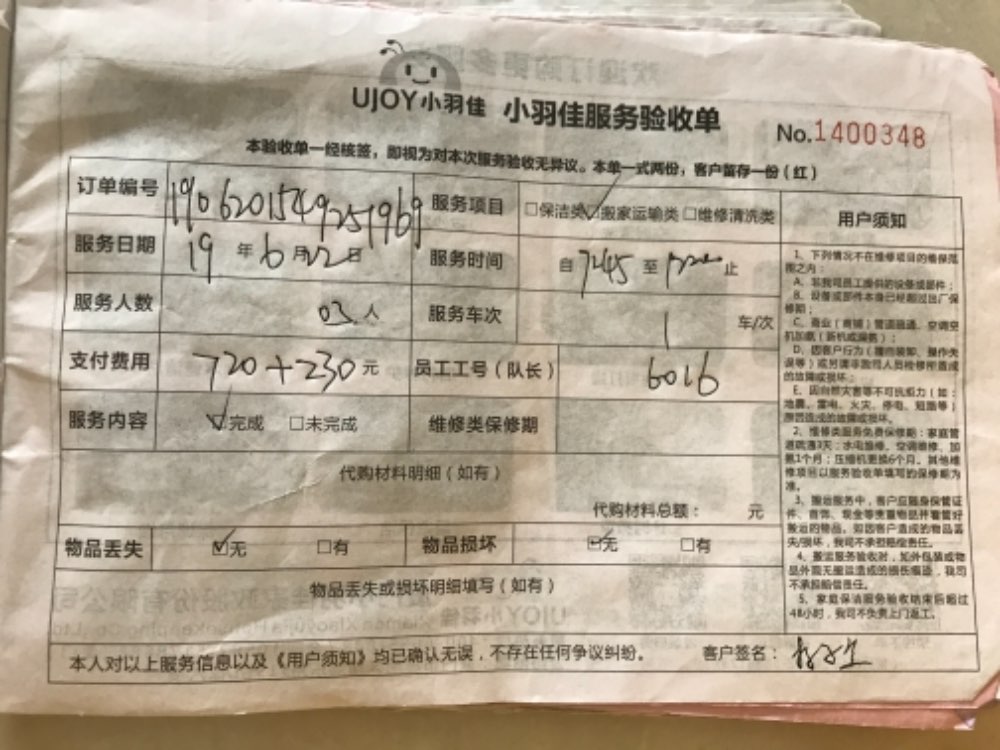 UJOY小羽佳 小羽佳服务验收单
No.1400348
本验收单一经核签，即视为对本次服务验收无异议。本单一式两份，客户留存一份(红)
订单编号 1906201549251969 服务项目 □保洁类 ☑搬家运输类 □维修清洗类 用户须知
服务日期 19年6月22日 服务时间 自7:45至 止
服务人数 03人 服务车次 1 车/次
支付费用 720+230元 员工工号(队长) 6016
服务内容 ☑完成 □未完成 维修类保修期
代购材料明细(如有)
代购材料总额： 元
物品丢失 ☑无 □有 物品损坏 ☑无 □有
物品丢失或损坏明细填写(如有)
本人对以上服务信息以及《用户须知》均已确认无误，不存在任何争议纠纷。 客户签名：
1、下列情况不在维修项目的维保范
围之内：
A、非我司员工提供的设备或部件；
B、设备或部件本身已经超过出厂保
修期；
C、商业(商铺)管道疏通、空调空
机加氨(新机或隔氨)；
D、因客户行为(擅自装卸、操作失
误等)或另请非我司人员维修所造成
的故障或损坏；
E、因自然灾害等不可抗拒力(如：
地震、雷电、火灾、停电、短路等)
原因造成的故障或损坏。
2、维修类服务免费保修期：家庭管
道疏通3天；水电维修、空调维修、加
氨1个月；压缩机更换6个月。其他维
修项目以服务验收单填写的保修期为
准。
3、搬运服务中，客户应随身保管证
件、首饰、现金等贵重物品并看管好
搬运的物品。如因客户造成的物品丢
失/损坏，我司不承担赔偿责任。
4、搬运服务验收时，如外包装或物
品外面无搬运造成的损伤痕迹，我司
不承担赔偿责任。
5、家庭保洁服务验收结束后超过
48小时，我司不免费上门返工。